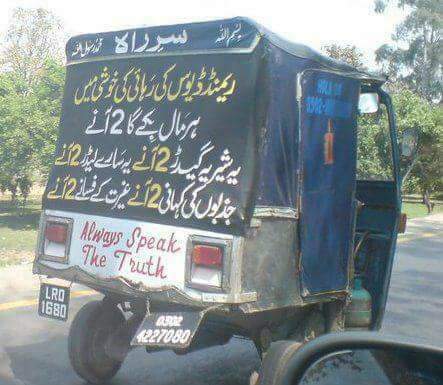 بسم الله سرِ راہ محمد رسول اللہ
ریمنڈ ڈیوس کی رہائی کی خوشی میں
ہر مال بکے گا 2 آنے
یہ شیر یہ گیدڑ 2 آنے یہ سارے لیڈر 2 آنے
جذبوں کی کہانی 2 آنے غیرت کے فسانے 2 آنے
Always Speak
The Truth
LRD
1680
0302
4227080
0302